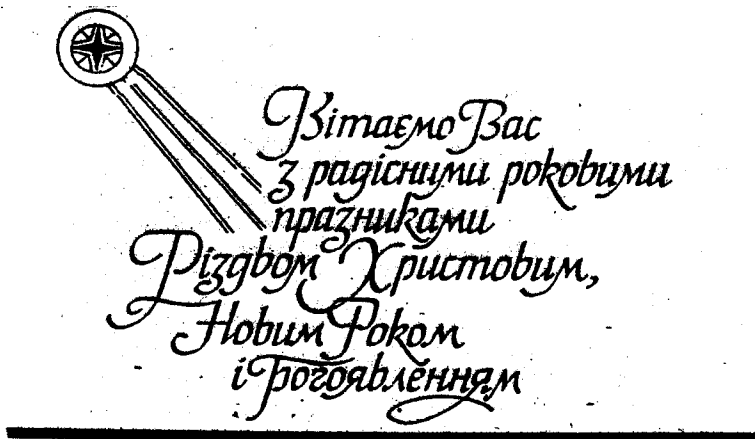 Вітаємо Вас
з радісними роковими
празниками
Різдвом Христовим,
Новим Роком
і Богоявленням